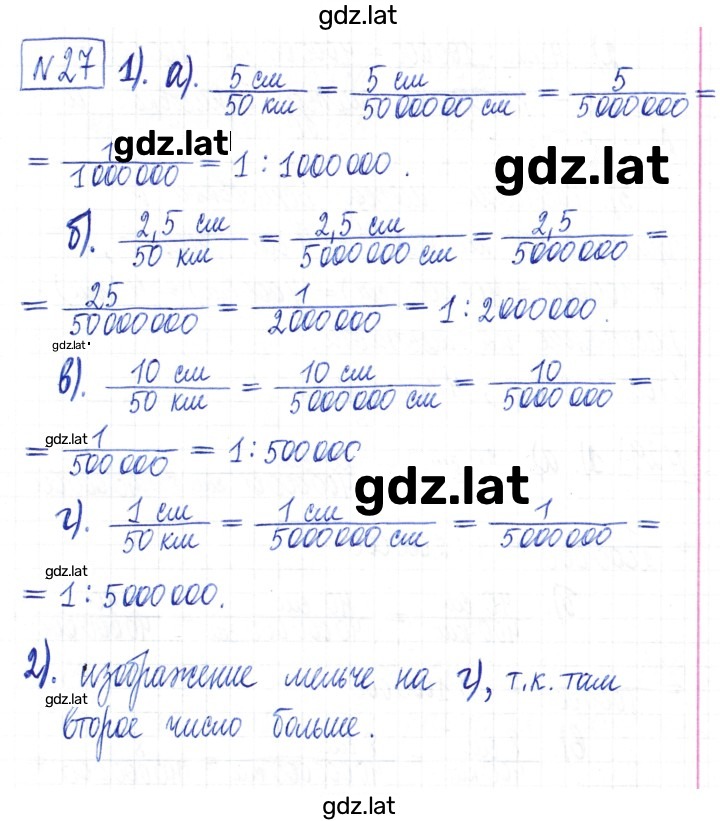 gdz.lat
№27 1). а). 5 см / 50 км = 5 см / 5000000 см = 5 / 5000000 =
= 1 / 1000000 = 1 : 1000000.
gdz.lat
gdz.lat
б). 2,5 см / 50 км = 2,5 см / 5000000 см = 2,5 / 5000000 =
= 25 / 50000000 = 1 / 2000000 = 1 : 2000000.
gdz.lat
в). 10 см / 50 км = 10 см / 5000000 см = 10 / 5000000 =
gdz.lat
= 1 / 500000 = 1 : 500000
gdz.lat
г). 1 см / 50 км = 1 см / 5000000 см = 1 / 5000000 =
gdz.lat
= 1 : 5000000.
2). изображение мельче на г), т.к. там
gdz.lat
второе число больше.
gdz.lat